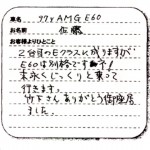 車名 97y AMG E60
お名前 佐藤
お客様よりひとこと
2台目のEクラスになりますが
E60は別格です!
末永くじっくりと乗って
行きます。
竹下さんありがとう御座居
ました。